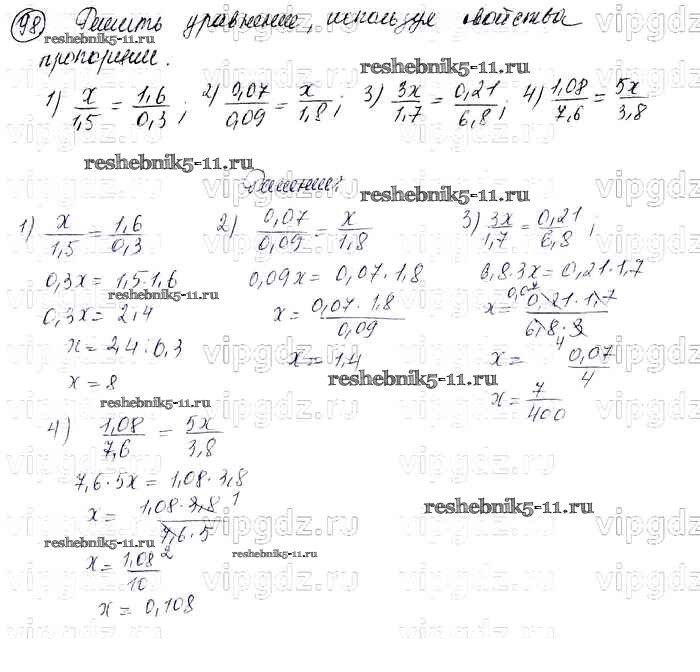 98) Решить уравнение, используя свойства
пропорции.
1) x/1,5 = 1,6/0,3; 2) 0,07/0,09 = x/1,8; 3) 3x/1,7 = 0,21/6,8; 4) 1,08/7,6 = 5x/3,8
reshebnik5-11.ru
reshebnik5-11.ru
Решение:
reshebnik5-11.ru
1) x/1,5 = 1,6/0,3
0,3x = 1,5·1,6
reshebnik5-11.ru
0,3x = 2,4
x = 2,4:0,3
x = 8
reshebnik5-11.ru
2) 0,07/0,09 = x/1,8
0,09x = 0,07·1,8
x = 0,07·1,8/0,09
x = 1,4
reshebnik5-11.ru
3) 3x/1,7 = 0,21/6,8;
6,8·3x = 0,21·1,7
x = 0,07 0,21·1,7/6,8·3 4
x = 0,07/4
x = 7/400
4) 1,08/7,6 = 5x/3,8
7,6·5x = 1,08·3,8
x = 1,08·3,8 1/7,6·5 2
reshebnik5-11.ru
reshebnik5-11.ru
reshebnik5-11.ru
x = 1,08/10
x = 0,108
vipgdz.ru